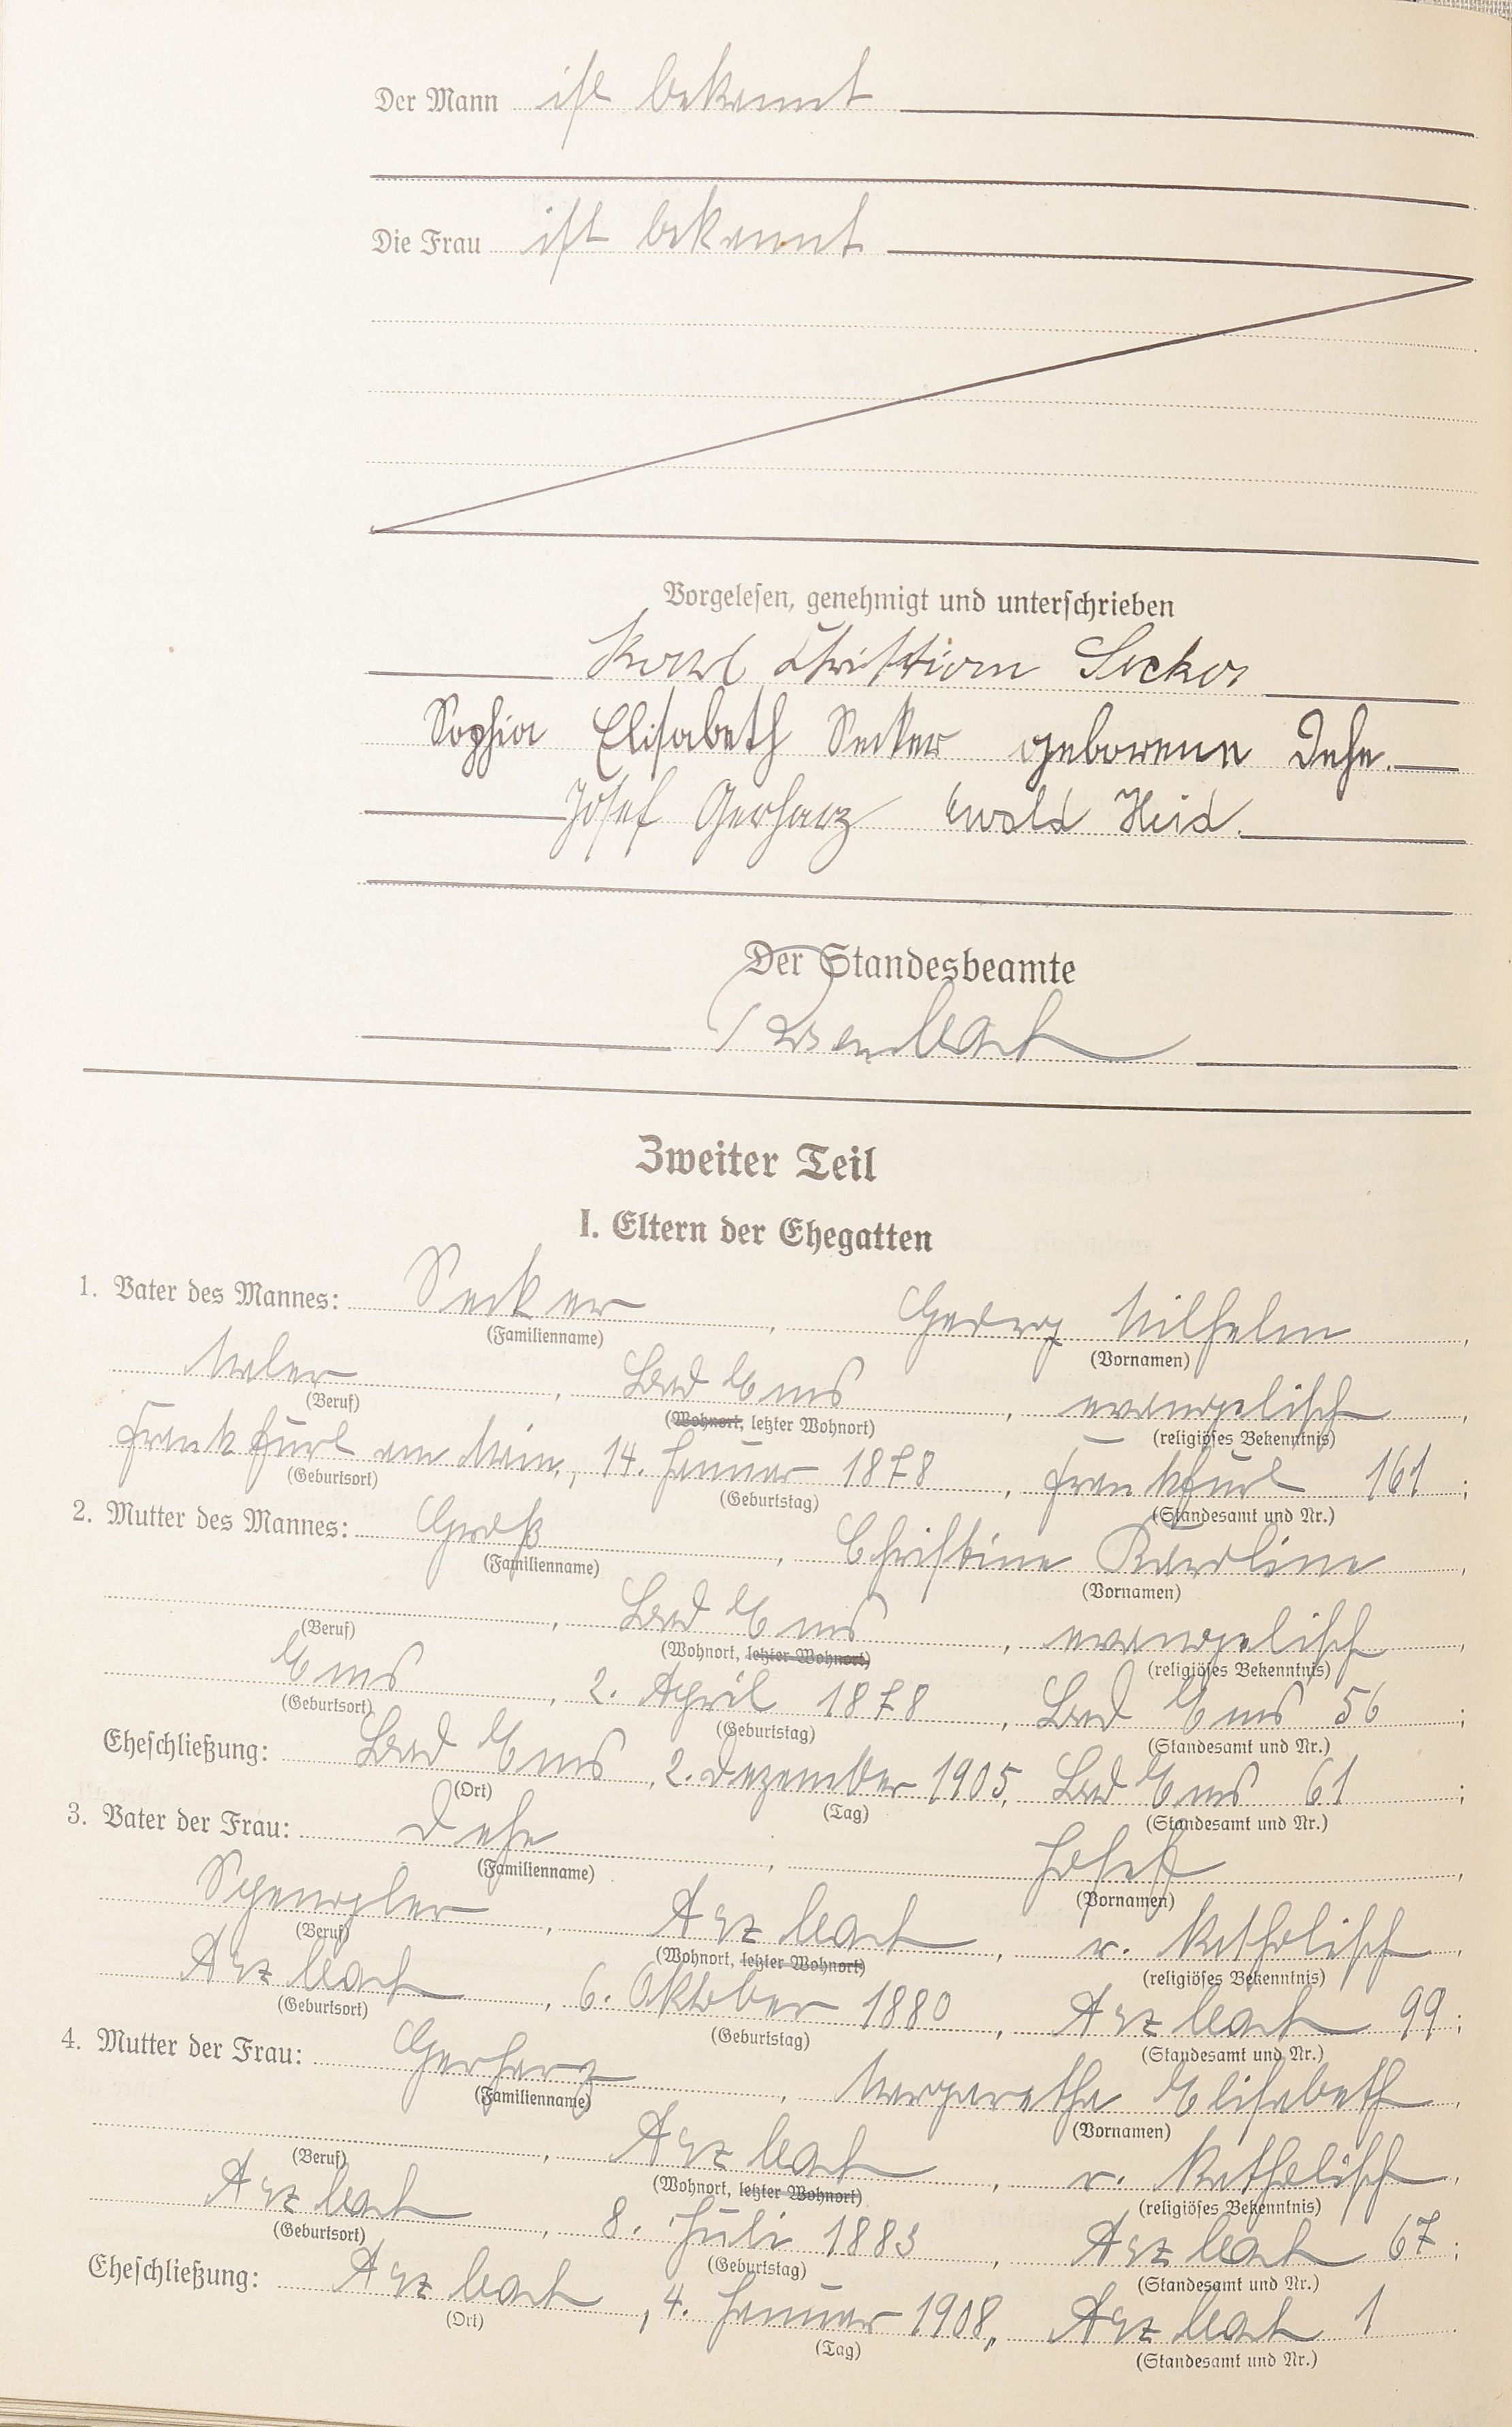 Der Mann ist bekannt
Die Frau ist bekannt
Vorgelesen, genehmigt und unterschrieben
Karl Christian Secker
Sophia Elisabeth Secker geborene Dehe.
Josef Gerharz Ewald Heid.
Der Standesbeamte
Zweiter Teil
I. Eltern der Ehegatten
1. Vater des Mannes: Secker, Georg Wilhelm,
(Familienname) (Vornamen)
Maler, Bad Ems, evangelisch,
(Beruf) (Wohnort, letzter Wohnort) (religiöses Bekenntnis)
Frankfurt am Main, 14. Januar 1878, Frankfurt 161;
(Geburtsort) (Geburtstag) (Standesamt und Nr.)
2. Mutter des Mannes: Groß, Christine Karoline,
(Familienname) (Vornamen)
, Bad Ems, evangelisch,
(Beruf) (Wohnort, letzter Wohnort) (religiöses Bekenntnis)
Ems, 2. April 1878, Bad Ems 56;
(Geburtsort) (Geburtstag) (Standesamt und Nr.)
Eheschließung: Bad Ems, 2. Dezember 1905, Bad Ems 61;
(Ort) (Tag) (Standesamt und Nr.)
3. Vater der Frau: Dehe, Josef,
(Familienname) (Vornamen)
Spengler, Arzbach, r. katholisch,
(Beruf) (Wohnort, letzter Wohnort) (religiöses Bekenntnis)
Arzbach, 6. Oktober 1880, Arzbach 99;
(Geburtsort) (Geburtstag) (Standesamt und Nr.)
4. Mutter der Frau: Gerharz, Margaretha Elisabeth,
(Familienname) (Vornamen)
, Arzbach, r. katholisch,
(Beruf) (Wohnort, letzter Wohnort) (religiöses Bekenntnis)
Arzbach, 8. Juli 1883, Arzbach 67;
(Geburtsort) (Geburtstag) (Standesamt und Nr.)
Eheschließung: Arzbach, 4. Januar 1908, Arzbach 1
(Ort) (Tag) (Standesamt und Nr.)